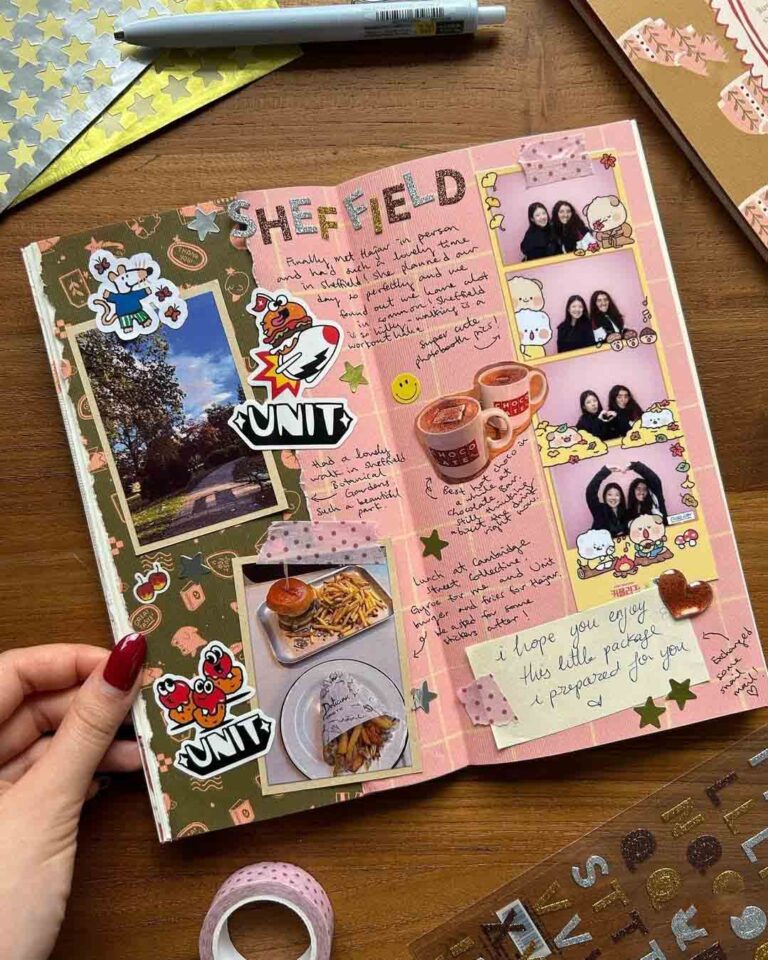 SHEFFIELD
Finally met Hajar in person
and had such a lovely time
in Sheffield! She planned our
day so perfectly and we
found out we have alot
in common! Sheffield
is so hilly - walking is a
workout like
super cute
photobooth pics!
UNIT
CHOCO
LATE
CHOCO
LATE
Had a lovely
walk in Sheffield
Botanical
Gardens
Such a beautiful
park.
Best hot choco
at
chocolate bar.
Still thinking
about the one
right now
Lunch at Cambridge
Street Collective!
Gyros for me and Unit
burger and fries for Hajar.
We asked for some
stickers after!
커플리즈
i hope you enjoy
this little package
i prepared for you
Exchanged
some
snail
mail!
UNIT
Delicious